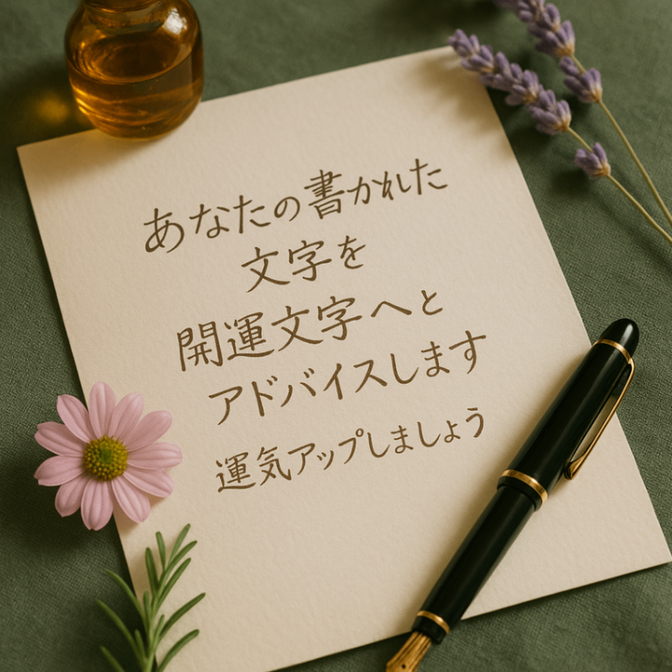 あなたの書かれた
文字を
開運文字へと
アドバイスします
運気アップしましょう